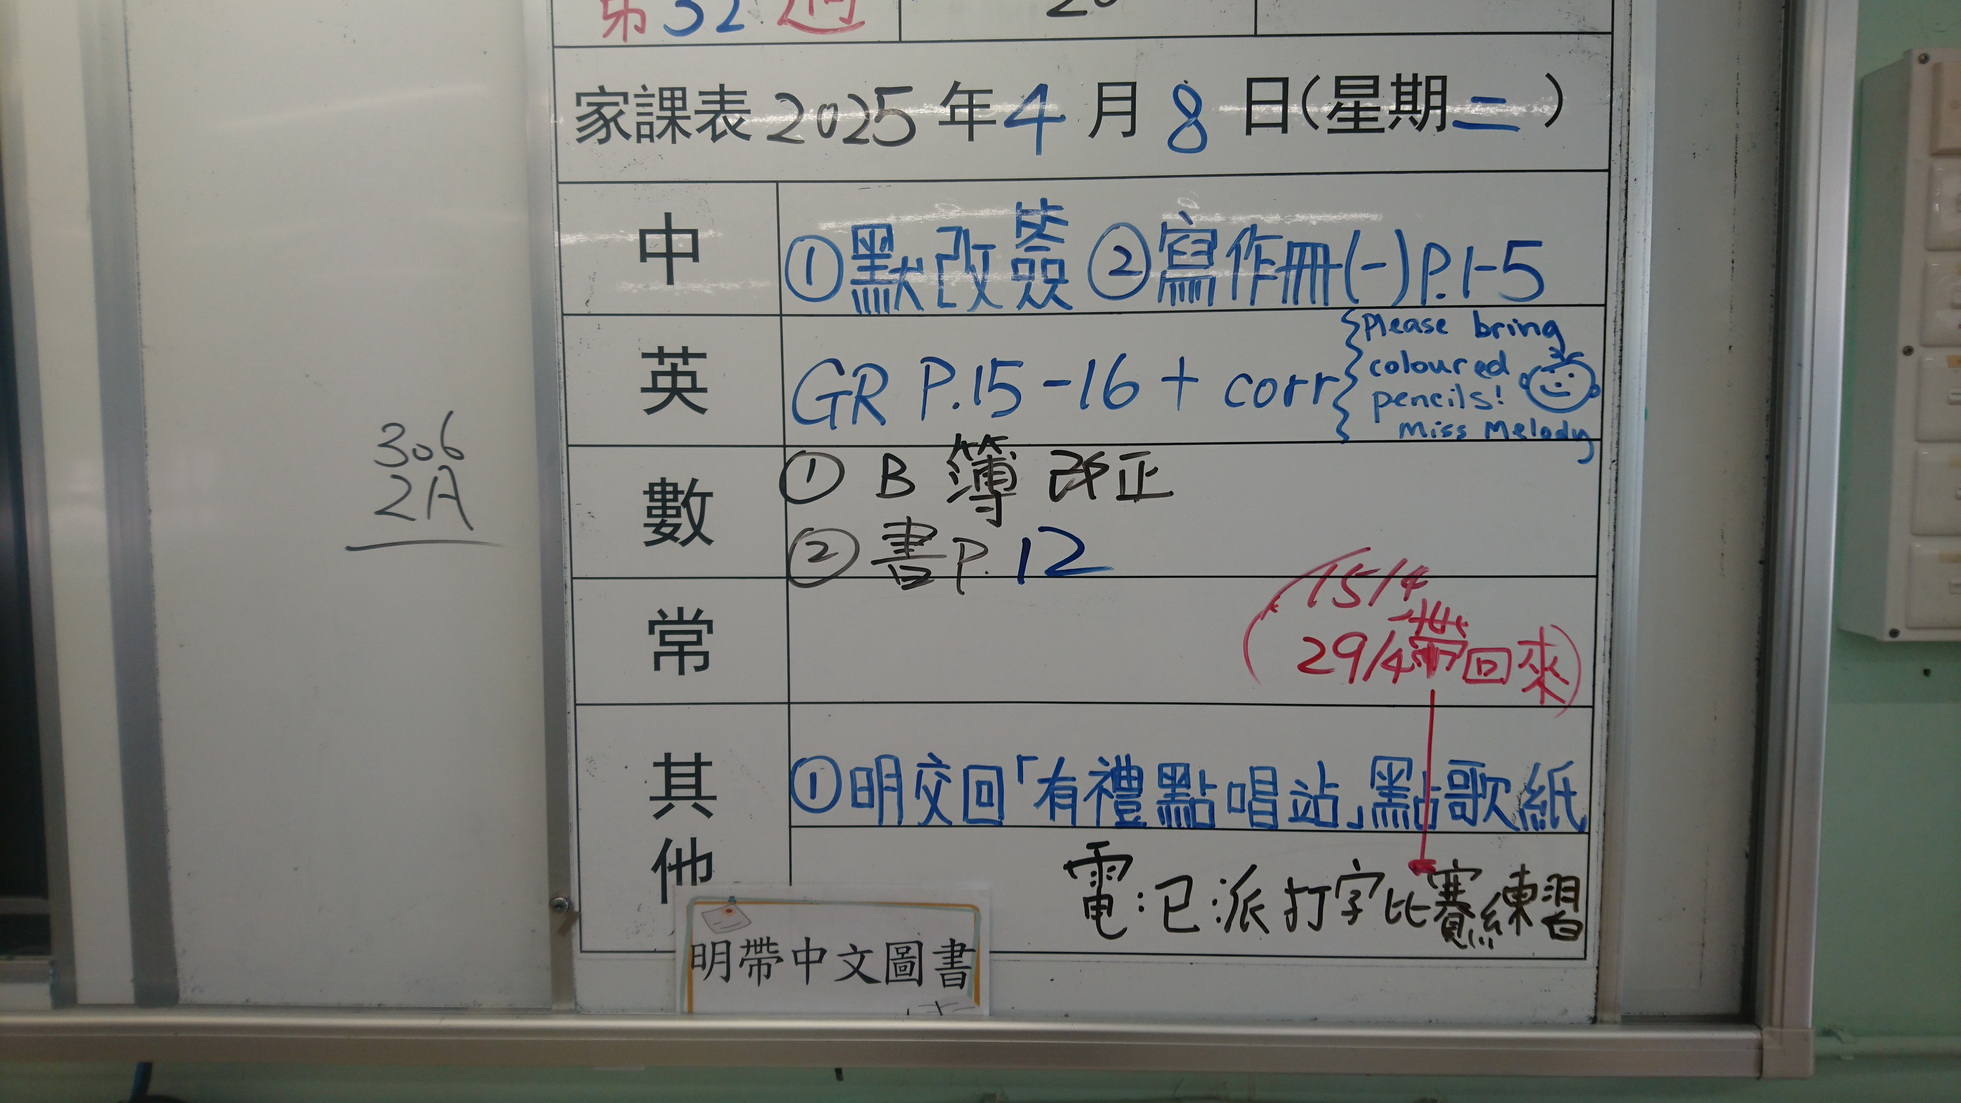 第32週
20
家課表2025年4月8日(星期二)
中
①默改簽 ②寫作冊(一)P.1-5
英
GR P.15-16 + corr
Please bring
coloured
pencils!
Miss Melody
數
① B簿改正
② 書P.12
306
2A
常
15/4
29/4帶回來
其他
①明交回「有禮點唱站」點歌紙
電:已派打字比賽練習
明帶中文圖書